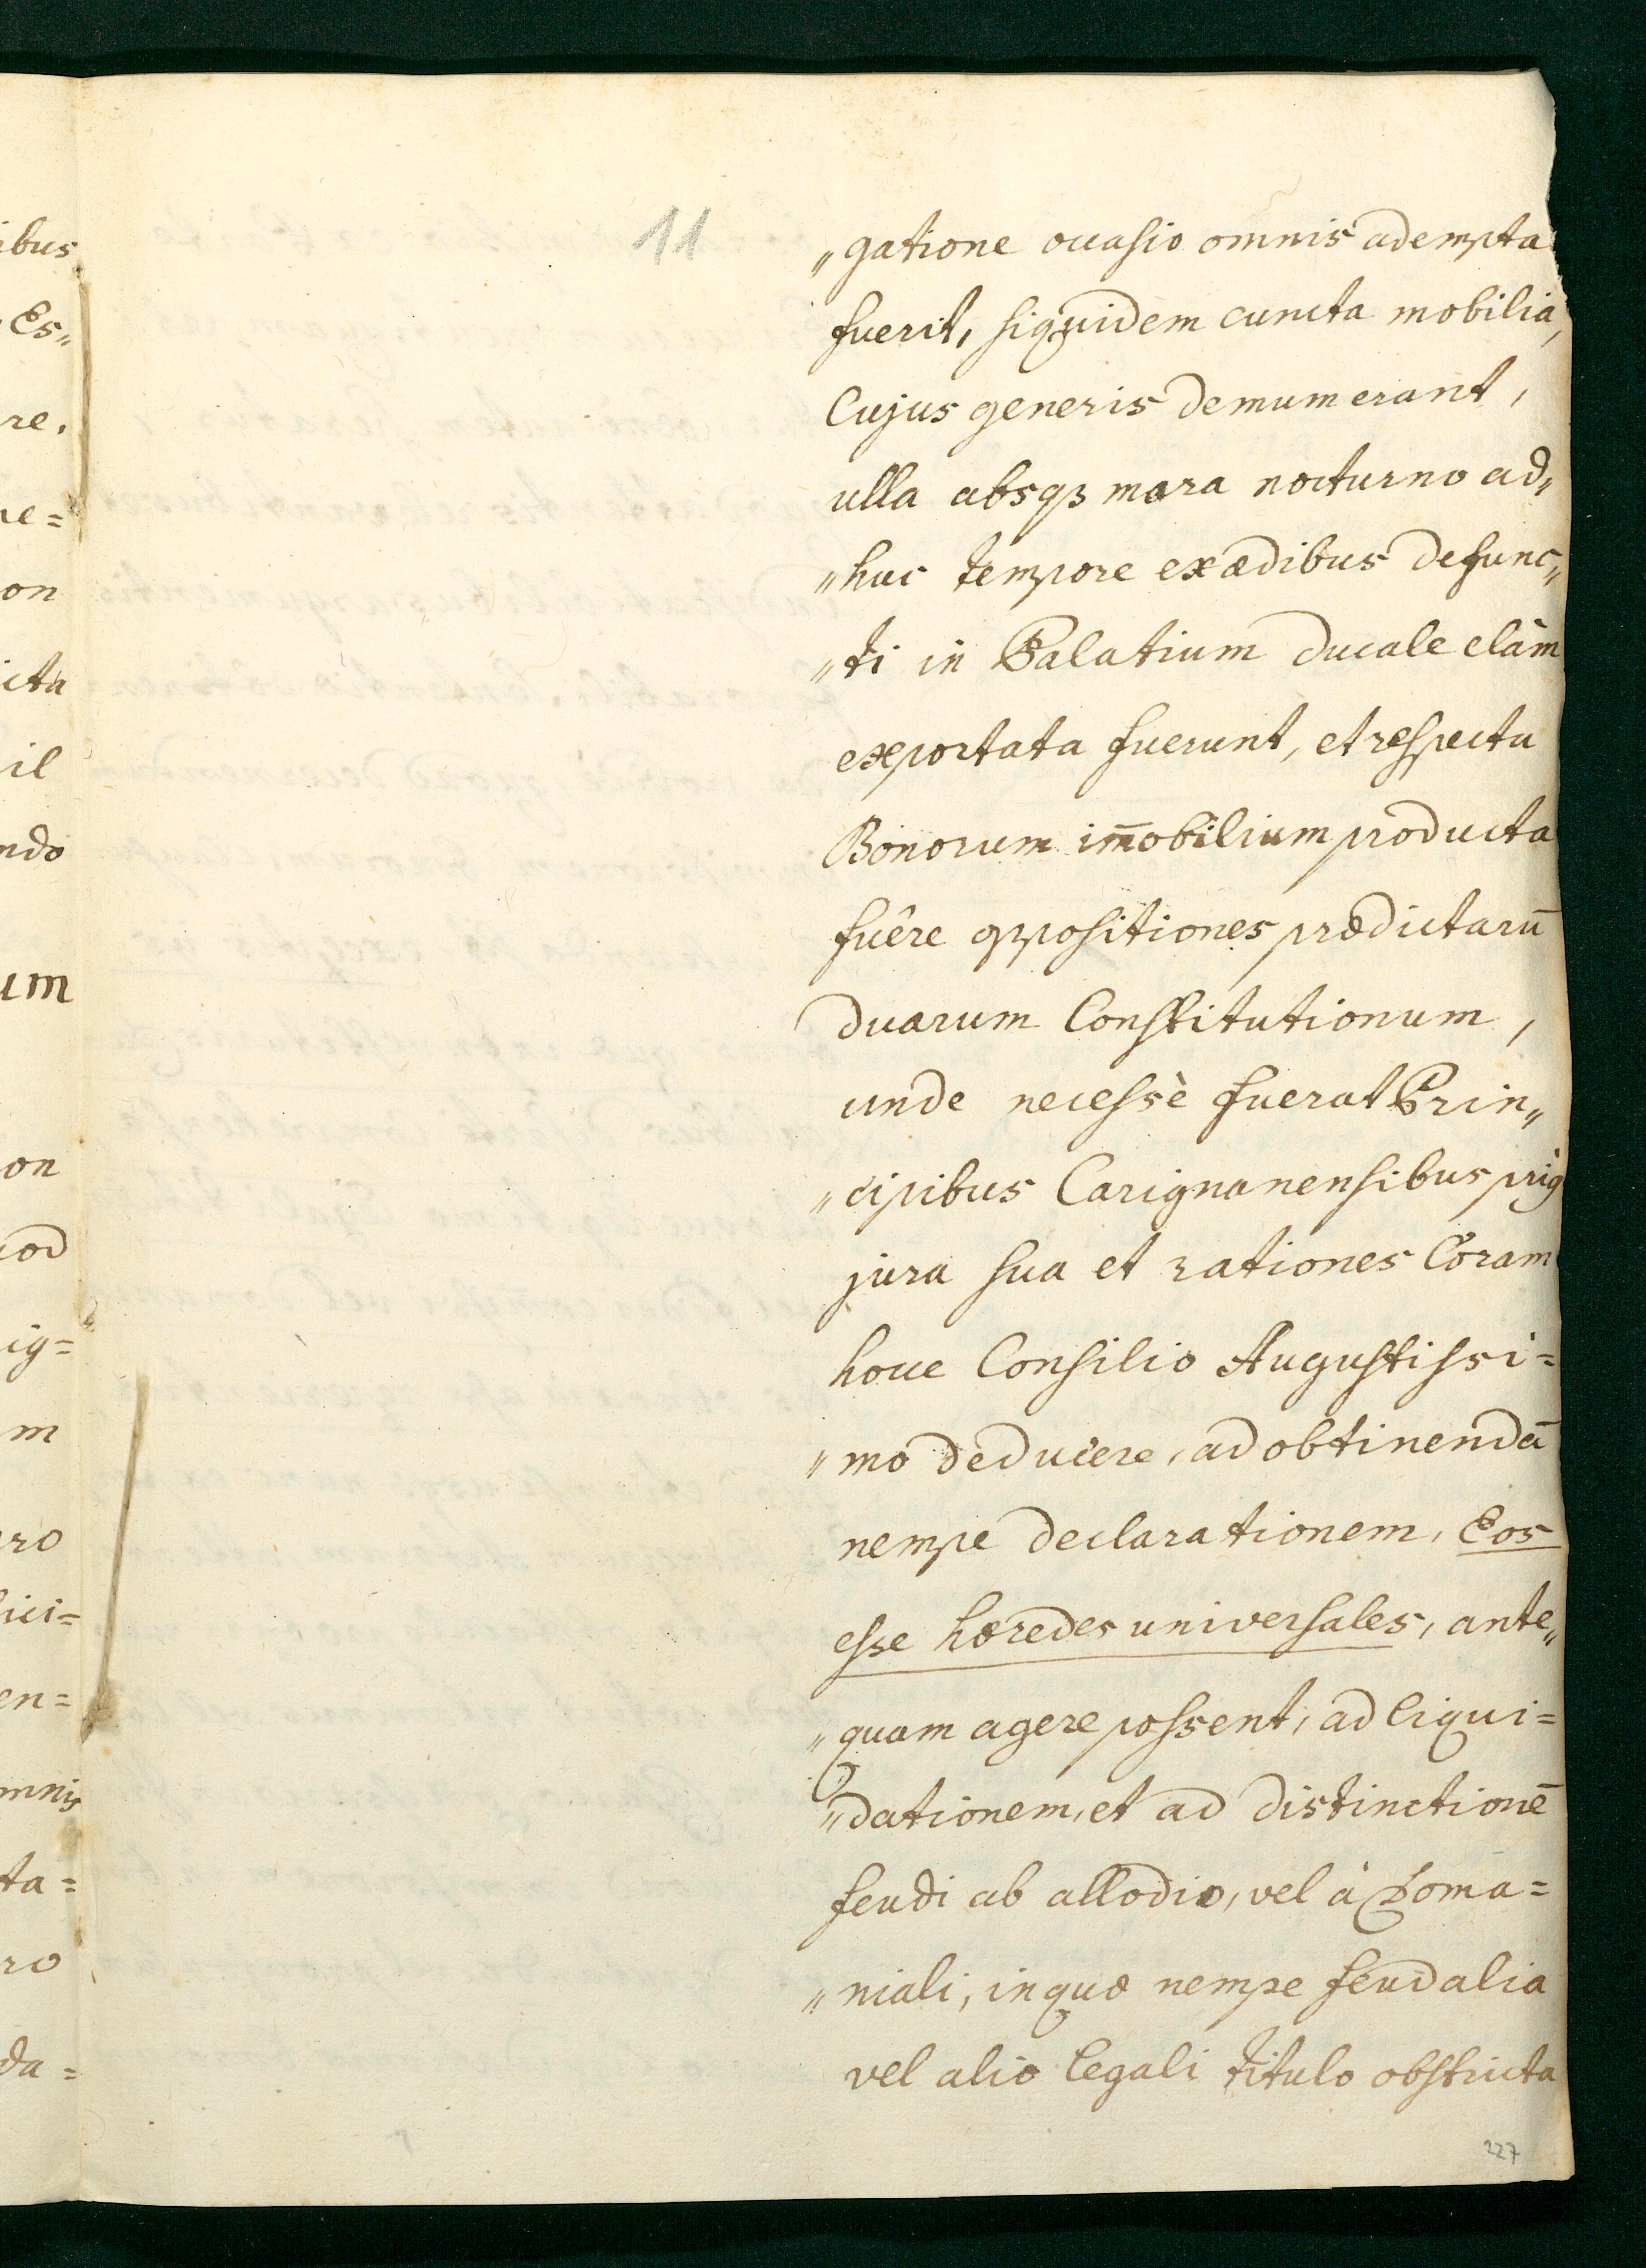 ibus
Es„
re.
ne=
on
icta
il
ndo
um
on
uod
ig=
m
ro
lici=
en=
mnis
ta=
ro
da=
11
„gatione occasio omnis adempta
fuerit, siquidem cuncta mobilia,
Cujus generis demum erant,
ulla absqȝ mora nocturno ad„
„huc tempore ex ædibus defunc„
„ti in Palatium ducale clàm
exportata fuerunt, et respectu
Bonorum im̄obilium producta
fuêre oppositiones prædictarū
duarum Constitutionum,
unde necessè fuerat Prin„
„cipibus Carignanensibus priùs
jura sua et rationes Coram
hocce Consilio Augustissi=
„mo deducere, ad obtinendā
nempe declarationem, Eos
esse hæredes universales, ante„
„quam agere possent, ad liqui=
„dationem, et ad distinctionē
feudi ab allodio, vel à Doma=
„niali, in quæ nempe feudalia
vel alio legali titulo obstricta
227